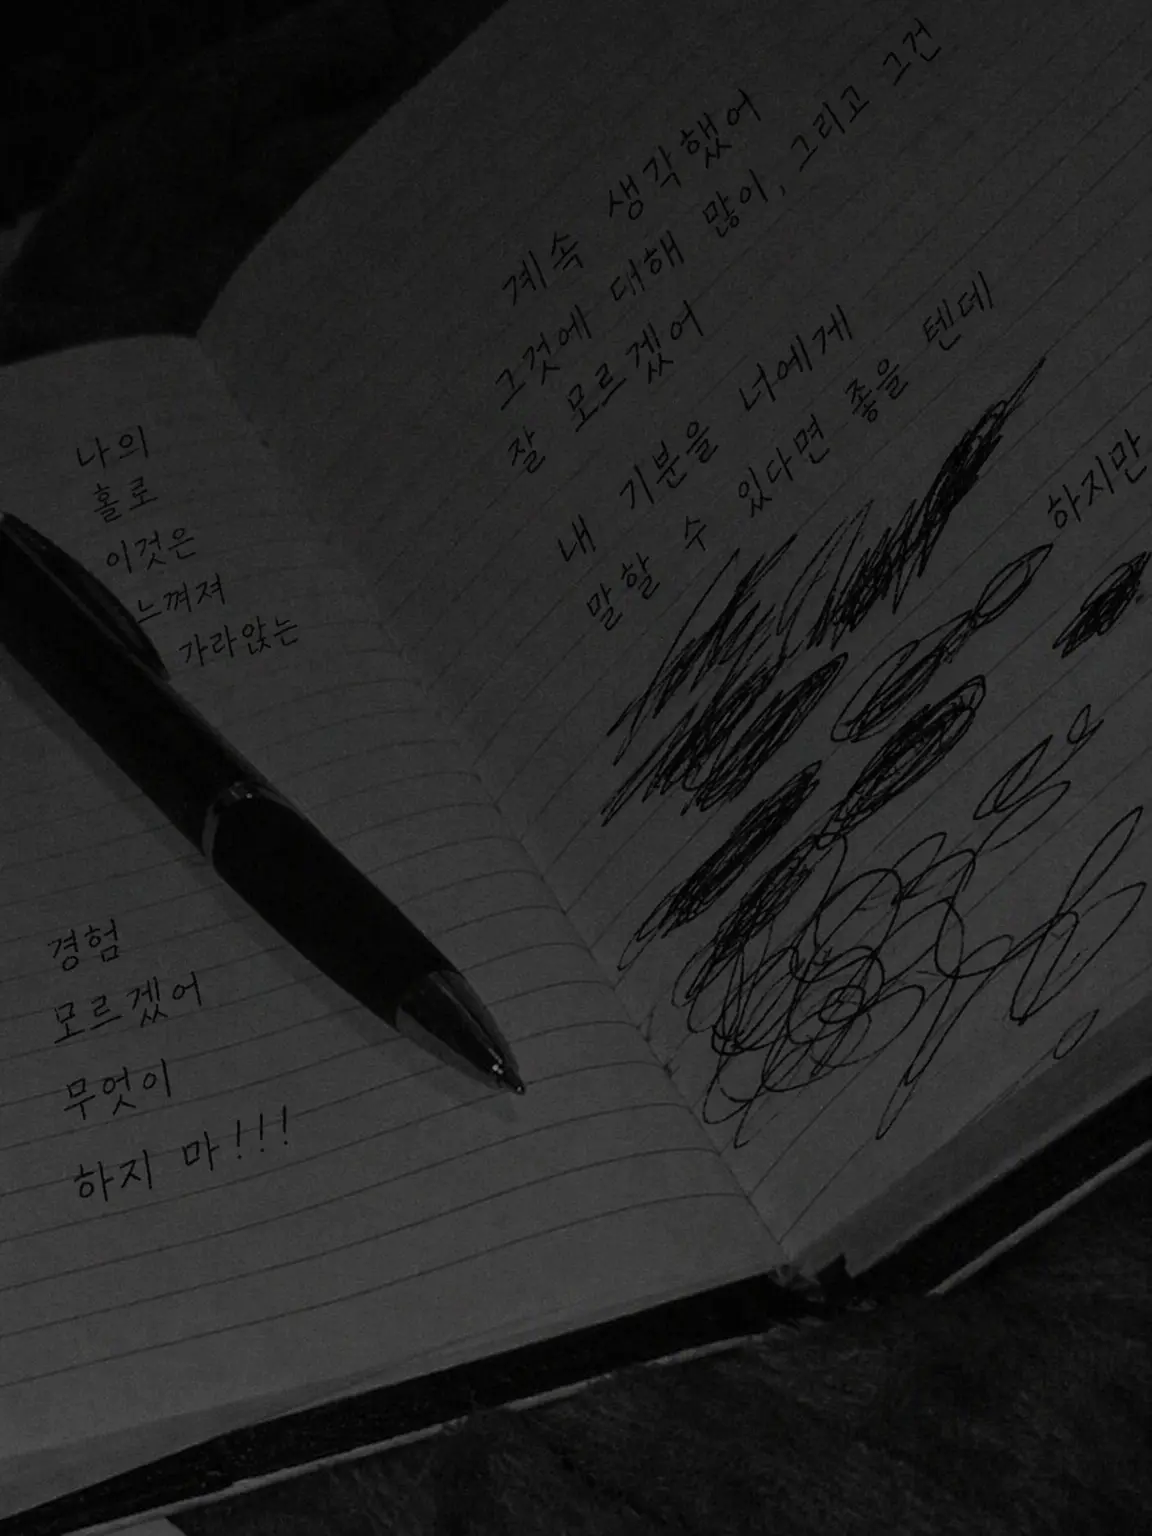 나의
홀로
이것은
느껴져
가라앉는
경험
모르겠어
무엇이
하지 마!!!
계속 생각했어
그것에 대해 많이, 그리고 그건
잘 모르겠어
내 기분을 너에게
말할 수 있다면 좋을 텐데
하지만